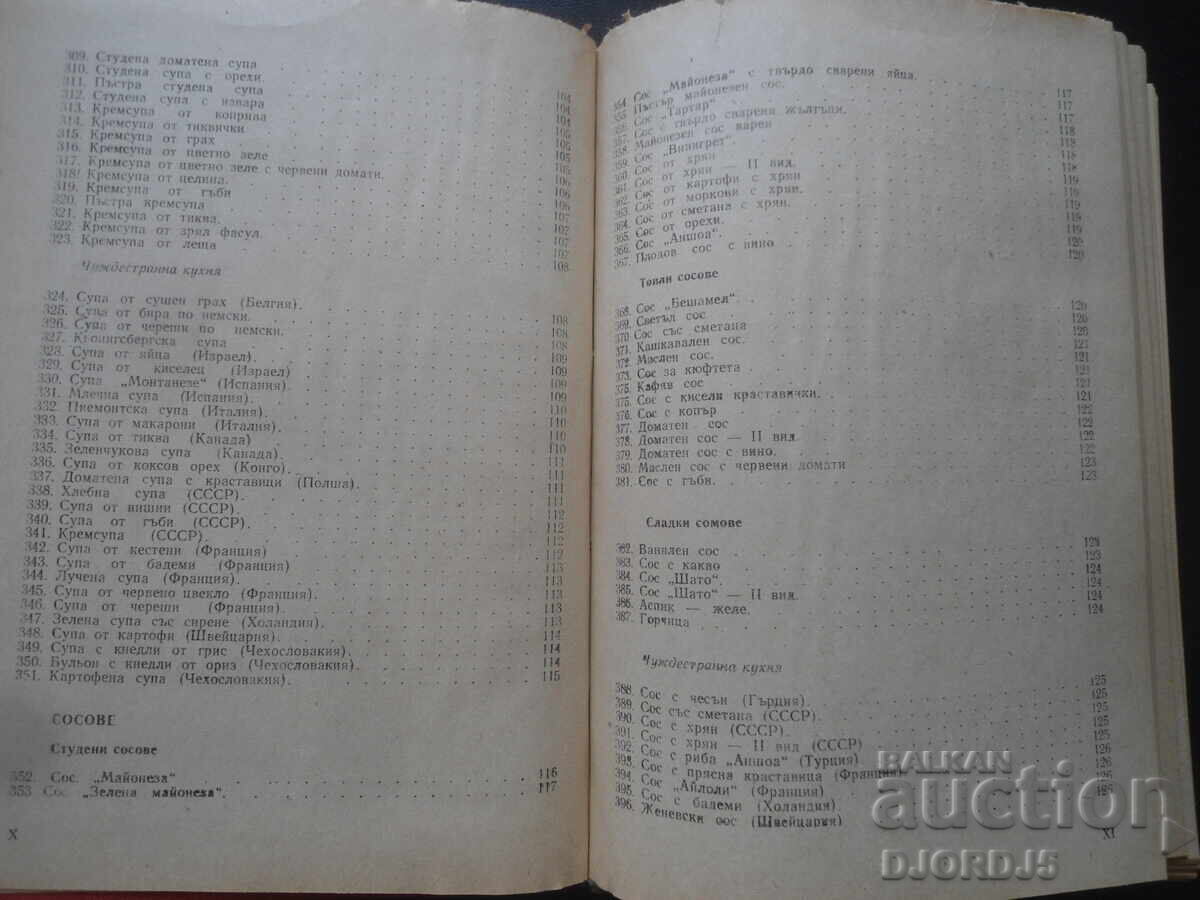 309. Студена доматена супа
310. Студена супа с орехи. 104
311. Пъстра студена супа 104
312. Студена супа с извара 104
313. Кремсупа от коприва 105
314. Кремсупа от тиквички 105
315. Кремсупа от грах 105
316. Кремсупа от цветно зеле 105
317. Кремсупа от цветно зеле с червени домати. 106
318. Кремсупа от целина. 106
319. Кремсупа от гъби 106
320. Пъстра кремсупа 107
321. Кремсупа от тиква. 107
322. Кремсупа от зрял фасул. 107
323. Кремсупа от леща 108
Чуждестранна кухня
324. Супа от сушен грах (Белгия). 108
325. Супа от бира по немски. 108
326. Супа от череши по немски. 108
327. Кьонигсбергска супа 109
328. Супа от яйца (Израел). 109
329. Супа от киселец (Израел) 109
330. Супа „Монтанезе“ (Испания). 109
331. Млечна супа (Испания). 110
332. Пиемонтска супа (Италия). 110
333. Супа от макарони (Италия). 110
334. Супа от тиква (Канада) 110
335. Зеленчукова супа (Канада). 111
336. Супа от кокосов орех (Конго). 111
337. Доматена супа с краставици (Полша). 111
338. Хлебна супа (СССР). 111
339. Супа от вишни (СССР). 112
340. Супа от гъби (СССР). 112
341. Кремсупа (СССР). 112
342. Супа от кестени (Франция) 112
343. Супа от бадеми (Франция) 113
344. Лучена супа (Франция). 113
345. Супа от червено цвекло (Франция). 113
346. Супа от череши (Франция). 113
347. Зелена супа със сирене (Холандия). 113
348. Супа от картофи (Швейцария). 114
349. Супа с кнедли от грис (Чехословакия). 114
350. Бульон с кнедли от ориз (Чехословакия). 114
351. Картофена супа (Чехословакия). 115
СОСОВЕ
Студени сосове
352. Сос. „Майонеза“ 116
353 Сос „Зелена майонеза“. 117
X
354. Сос „Майонеза“ с твърдо сварени яйца. 117
355. Пъстър майонезен сос. 117
356. Сос „Тартар“ 117
357. Сос с твърдо сварени жълтъци. 118
358. Майонезен сос варен 118
359. Сос „Винигрет“. 118
360. Сос от хрян 118
361. Сос от хрян — II вид. 119
362. Сос от картофи с хрян 119
363. Сос от моркови с хрян. 119
364. Сос от сметана с хрян. 119
365. Сос от орехи. 119
366. Сос „Аншоа“. 120
367. Плодов сос с вино 120
Топли сосове
368. Сос „Бешамел“. 120
369. Светъл сос 120
370. Сос със сметана 120
371. Кашкавален сос. 121
372. Маслен сос. 121
373. Сос за кюфтета 121
375. Кафяв сос 121
375. Сос с кисели краставички. 121
376. Сос с копър 122
377. Доматен сос 122
378. Доматен сос — II вид. 122
379. Доматен сос с вино. 122
380. Маслен сос с червени домати 123
381. Сос с гъби. 123
Сладки сомове
382. Ванилен сос 123
383. Сос с какао 123
384. Сос „Шато“. 124
385. Сос „Шато“ — II вид. 124
386. Аспик — желе. 124
387. Горчица 124
Чуждестранна кухня
388. Сос с чесън (Гърция). 125
389. Сос със сметана (СССР). 125
390. Сос с хрян (СССР). 125
391. Сос с хрян — II вид (СССР) 125
392. Сос с риба „Аншоа“ (Турция). 126
393. Сос с прясна краставица (Франция). 126
394. Сос „Айлоли“ (Франция) 126
395. Сос с бадеми (Холандия).
396. Женевски сос (Швейцария)
XI
BALKAN
auction
DJORDJ5